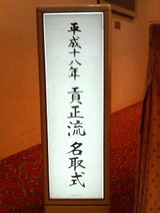 平成十八年 貢正流 名取式